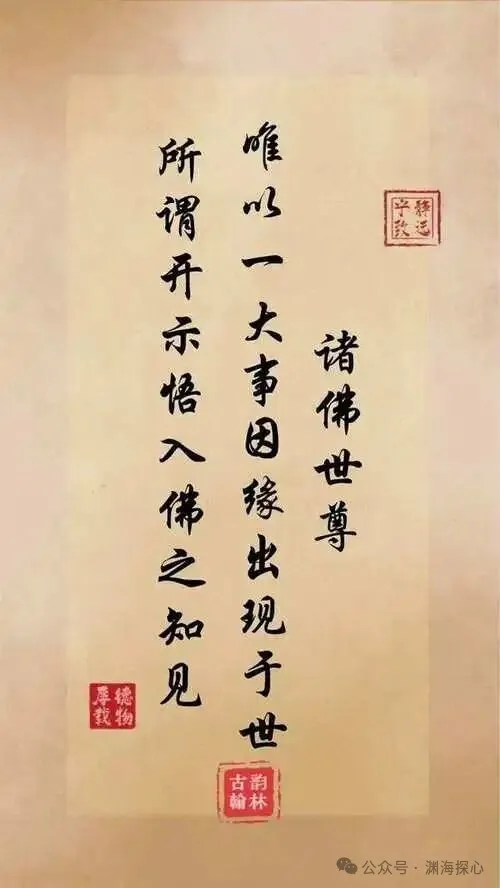 诸佛世尊
唯以一大事因缘出现于世
所谓开示悟入佛之知见
宁静
致远
厚德
载物
古韵
翰林
公众号 · 渊海探心